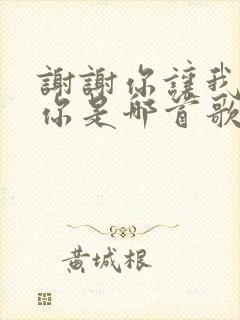 謝謝你讓我
你是哪首歌
黃城根